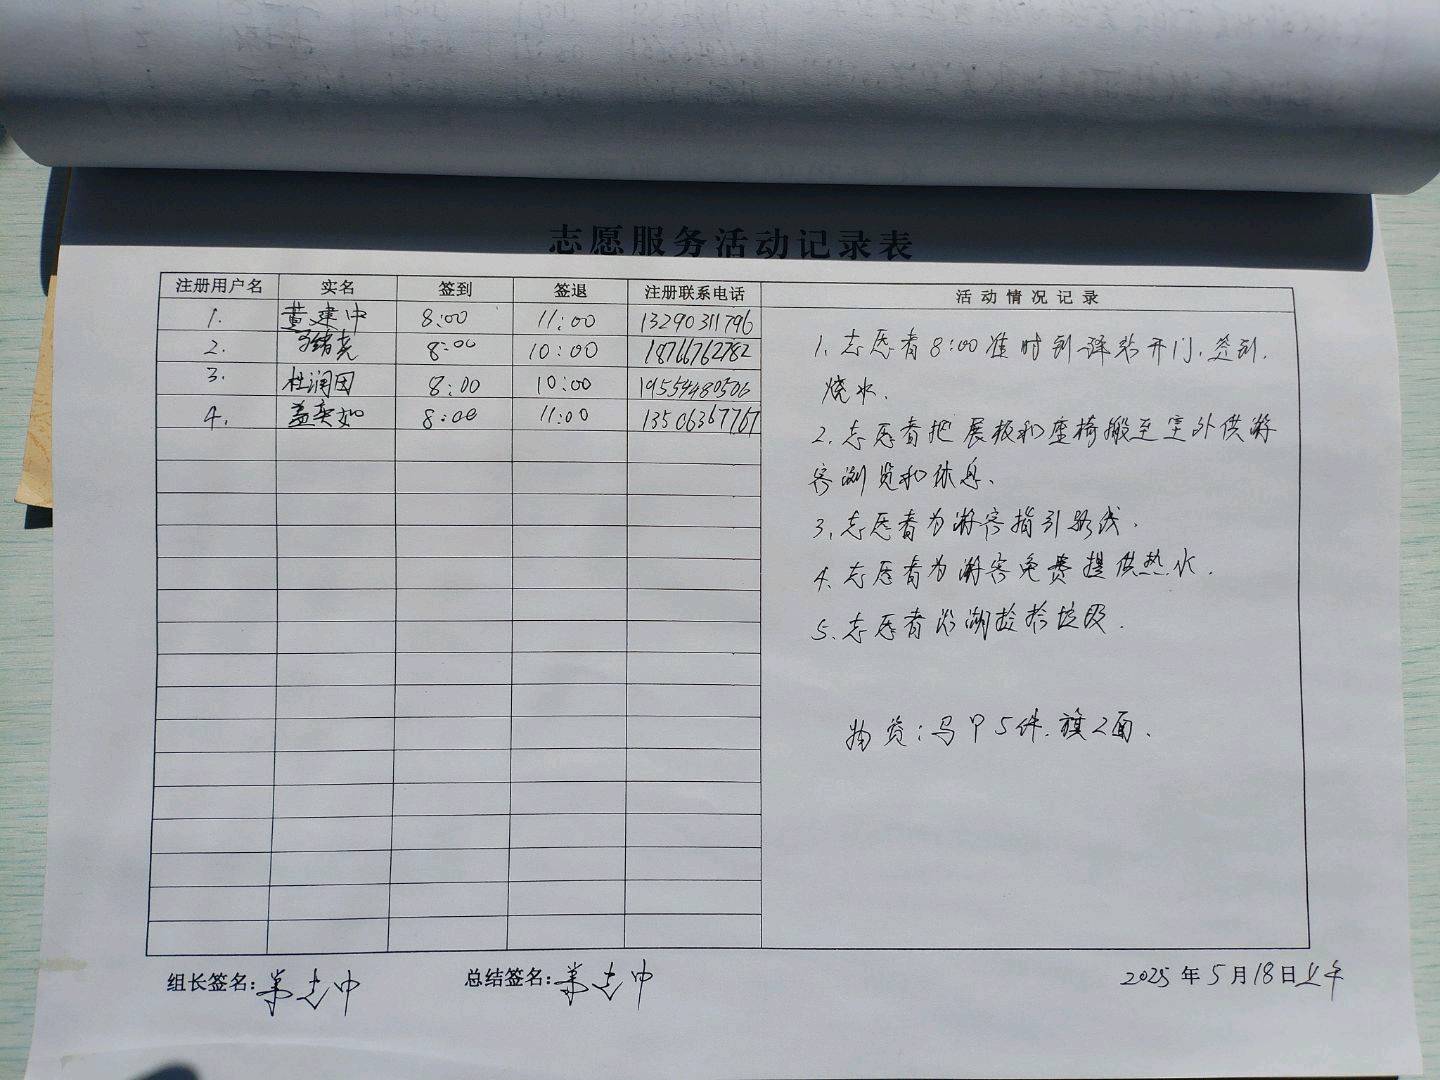 志愿服务活动记录表
注册用户名 实名 签到 签退 注册联系电话 活动情况记录
1. 黄建中 8:00 11:00 13290311796
2. 8:00 10:00 18766762782
3. 杜润田 8:00 10:00 19554480506
4. 盖奕如 8:00 11:00 13506367767
1. 志愿者8:00准时到驿站开门、签到、
烧水.
2. 志愿者把展板和座椅搬至室外供游
客浏览和休息.
3. 志愿者为游客指引路线.
4. 志愿者为游客免费提供热水.
5. 志愿者沿湖捡拾垃圾.
物资:马甲5件.旗2面.
组长签名: 总结签名: 2025年5月18日上午